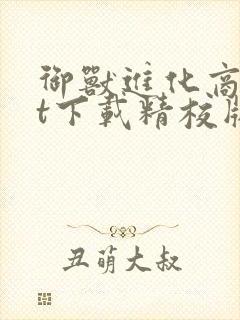 御獸進化商
t下載精校版
丑萌大叔